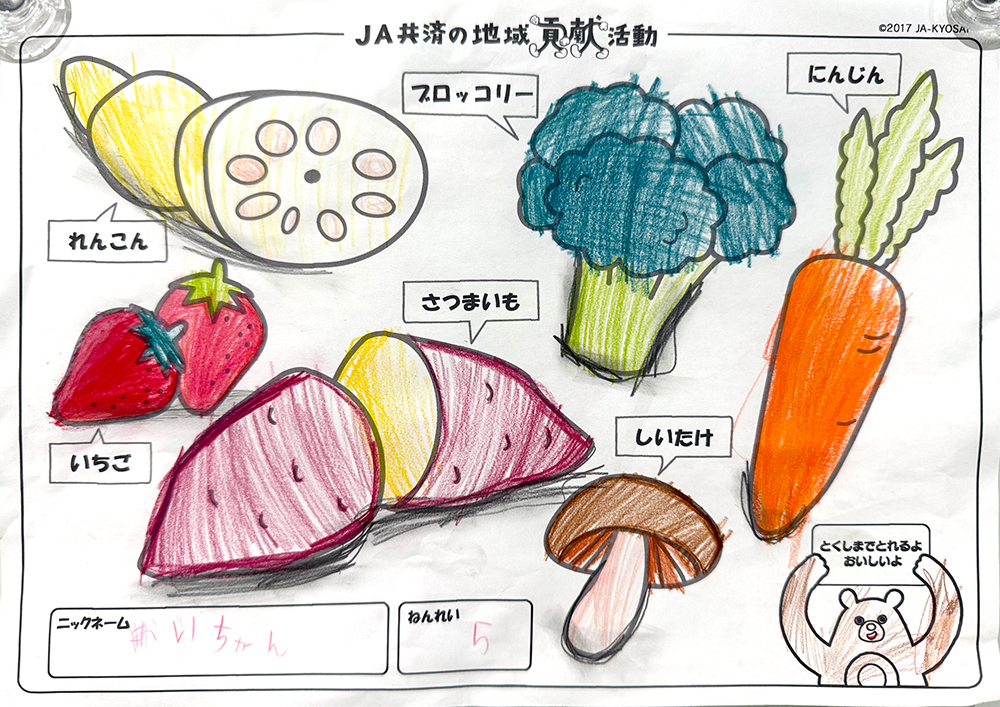 JA共済の地域貢献活動
©2017 JA-KYOSAI
ブロッコリー
にんじん
れんこん
さつまいも
いちご
しいたけ
とくしまでとれるよ
おいしいよ
ニックネーム
いちゃん
ねんれい
5